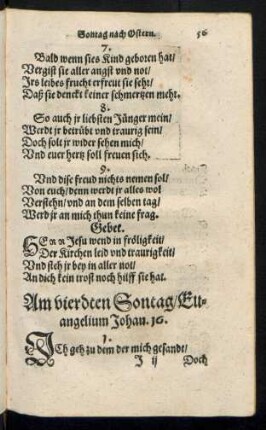 Sontag nach Ostern. 56
7.
Bald wenn sies Kind geboren hat/
Vergist sie aller angst vnd not/
Irs leibes frucht erfreut sie sehr/
Daß sie denckt keiner schmertzen mehr.
8.
So auch jr liebsten Jünger mein/
Werdt jr betrübt vnd traurig sein/
Doch solt jr wider sehen mich/
Vnd euer hertz soll freuen sich.
9.
Vnd dise freud nichts nemen sol/
Von euch/denn werdt jr alles wol
Verstehn/vnd an dem selben tag/
Werd jr an mich thun keine frag.
Gebet.
HErr Jesu wend in fröligkeit/
Der Kirchen leid vnd traurigkeit/
Vnd steh jr bey in aller not/
An dich kein trost noch hilff sie hat.
Am vierdten Sontag/Eu-
angelium Johan. 16.
1.
ICh geh zu dem der mich gesandt/
J ij Doch